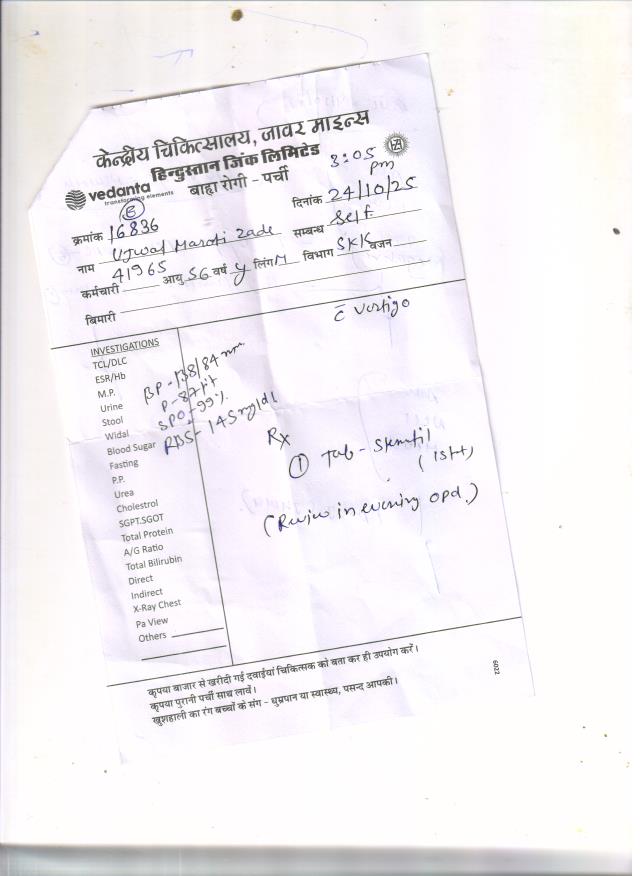 केन्द्रीय चिकित्सालय, जावर माइन्स
हिन्दुस्तान जिंक लिमिटेड
vedanta
transforming elements
बाह्य रोगी - पर्ची
3:05 pm
E
क्रमांक 16836 दिनांक 24/10/25
नाम Ujwal Maroti Zade सम्बन्ध Self
कर्मचारी 41965 आयु 56 वर्ष y लिंग M विभाग SKK वजन
बिमारी
c̄ vertigo
INVESTIGATIONS
TCL/DLC
ESR/Hb
M.P.
Urine
Stool
Widal
Blood Sugar
Fasting
P.P.
Urea
Cholestrol
SGPT.SGOT
Total Protein
A/G Ratio
Total Bilirubin
Direct
Indirect
X-Ray Chest
Pa View
Others
BP - 138/84
P - 87
SPO2 - 99%
RBS - 145 mg/dl
Rx
① Tab - Stemtil
(Review in evening OPD.)
कृपया बाजार से खरीदी गई दवाईयां चिकित्सक को बता कर ही उपयोग करें।
कृपया पुरानी पर्ची साथ लावें।
खुशहाली का रंग बच्चों के संग - धुम्रपान या स्वास्थ्य, पसन्द आपकी।
6022